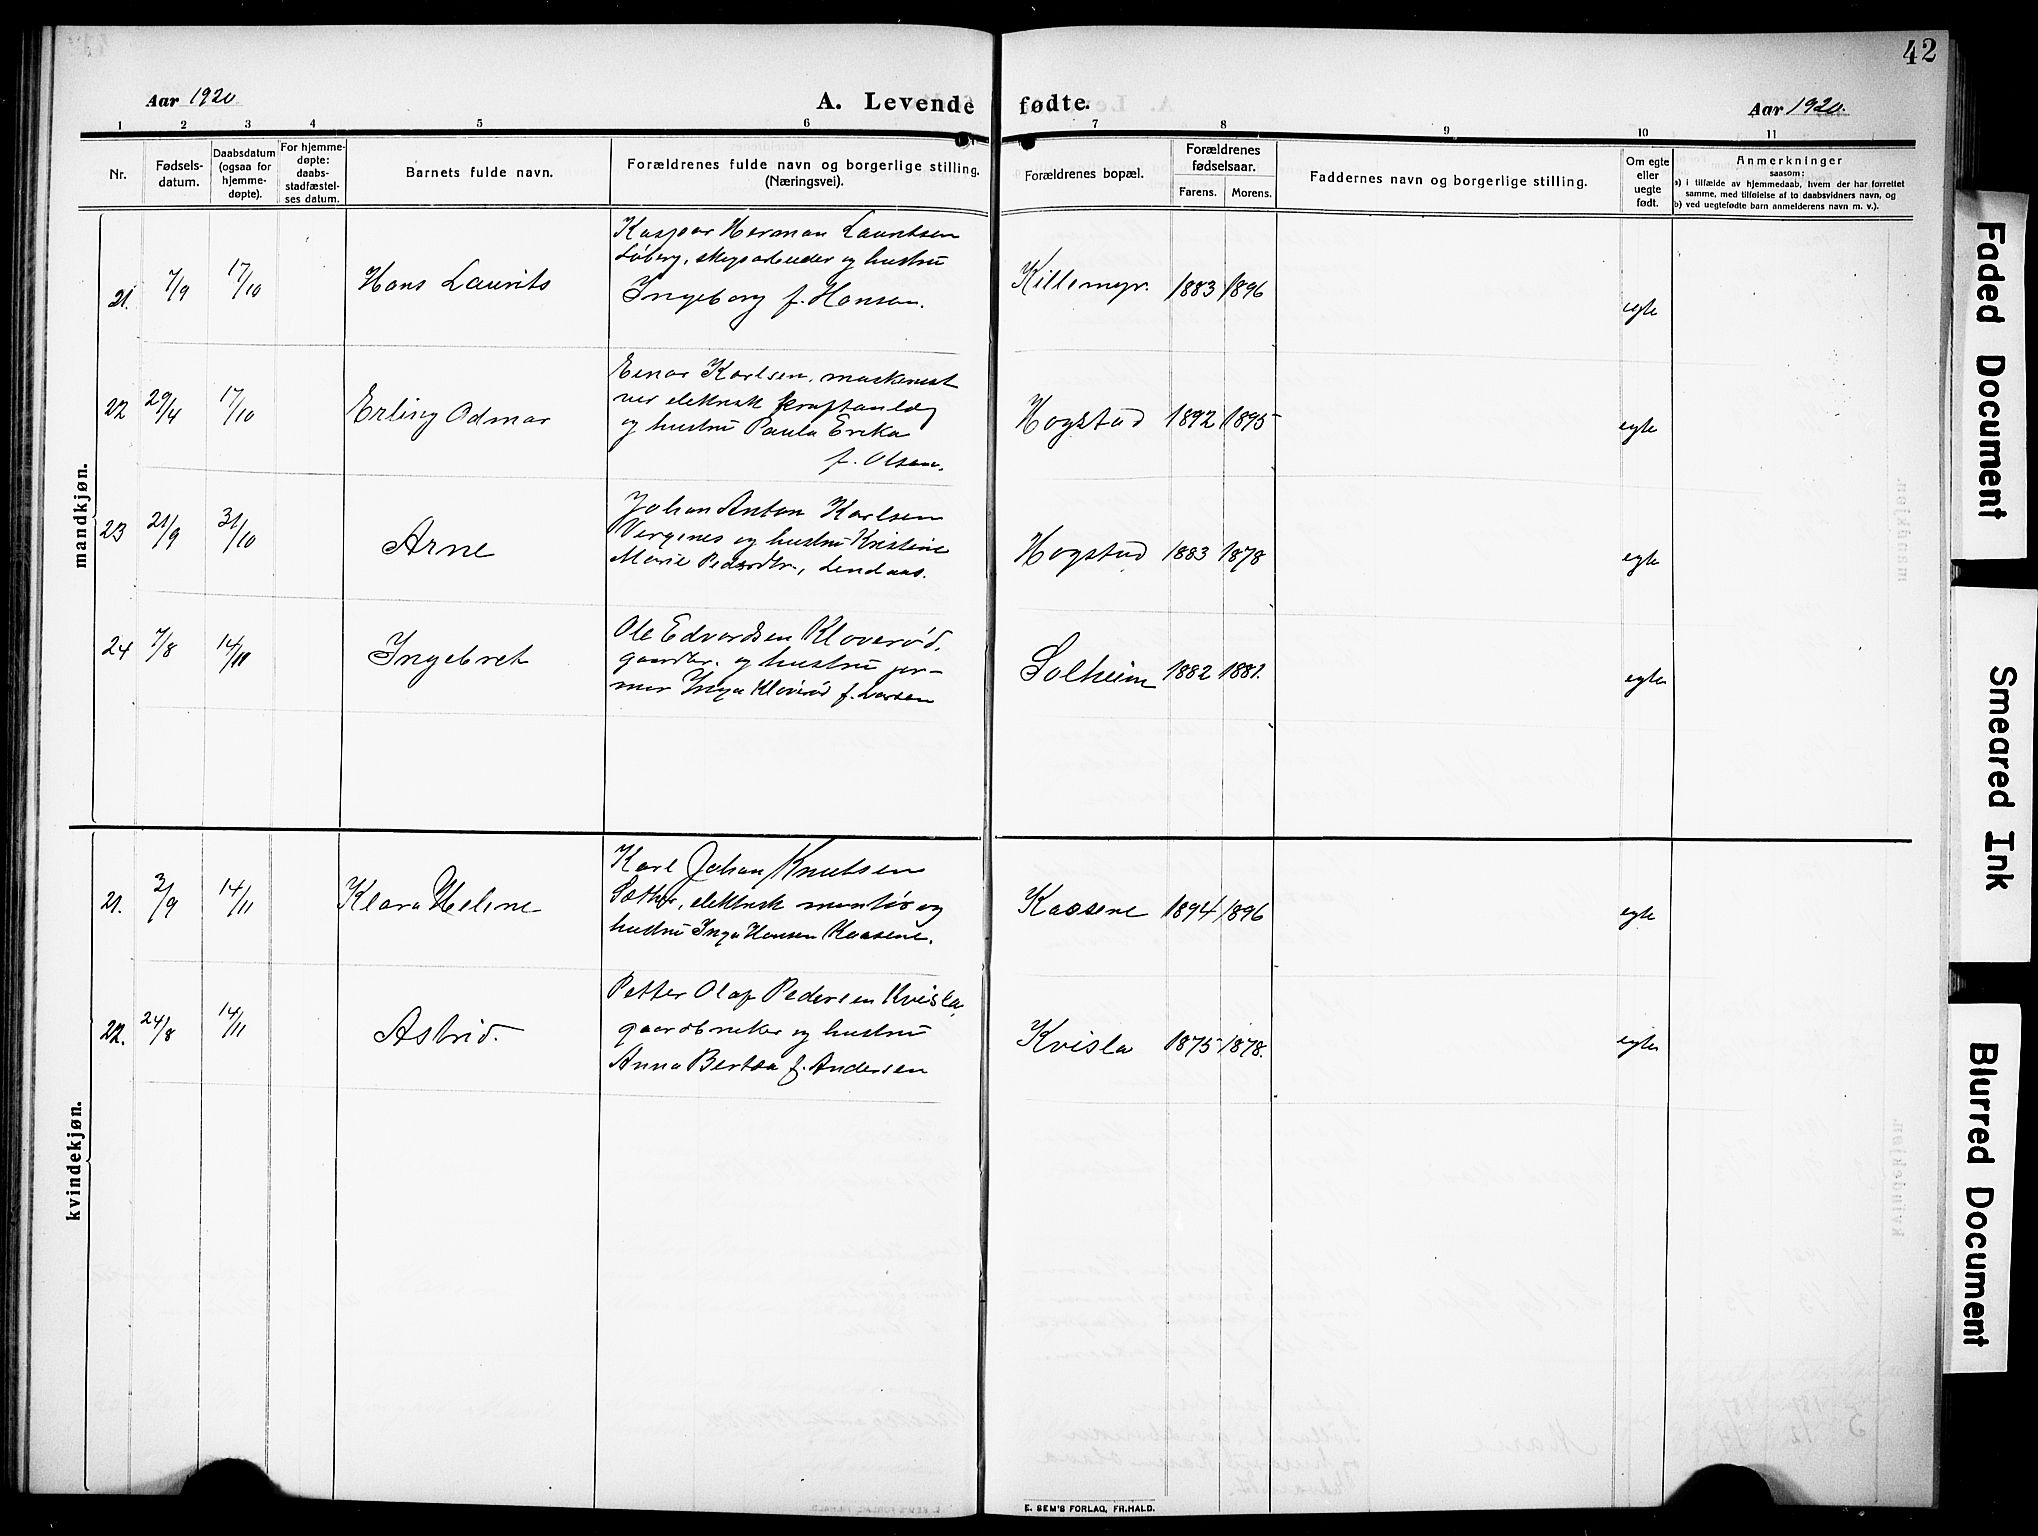 42
Aar 1920
A. Levende fødte.
Aar 1920.
1 2 3 4 5 6 7 8 9 10 11
Nr.
Fødsels-
datum.
Daabsdatum
(ogsaa for
hjemme-
døpte).
For hjemme-
døpte:
daabs-
stadfæstel-
ses datum.
Barnets fulde navn.
Forældrenes fulde navn og borgerlige stilling.
(Næringsvei).
Forældrenes bopæl.
Forældrenes
fødselsaar.
Farens. Morens.
Faddernes navn og borgerlige stilling.
Om egte
eller
uegte
født.
Anmerkninger
saasom:
a) i tilfælde av hjemmedaab, hvem der har forrettet
samme, med tilføielse af to daabsvidners navn, og
b) ved uegtefødte barn anmelderens navn m. v.).
mandkjøn.
21. 7/9 17/10 Hans Laurits
Kaspar Herman Lauritsen
Løberg, skogsarbeider og hustru
Ingeborg f. Hansen.
Killemyr. 1883 1896 egte
22 29/4 17/10 Erling Odmar
Einar Karlsen, maskinist
ver elektrisk kraftanlæg
og hustru Paula Erika
f. Olsen.
Hogstad 1892 1895 egte
23 21/9 31/10 Arne
Johan Anton Karlsen
og hustru Kristine
Marie Pedersdtr.,
Hogstad 1883 1878 egte
24 7/8 14/11 Ingebret
Ole Edvardsen Kloverød.
gaardbr. og hustru jor-
mor Inga Kloverød f. Larsen
Solheim 1882 1881. egte
kvindekjøn.
21. 3/9 14/11 Klara Helene
Karl Johan Knutsen
Sæther, elektrisk montør og
hustru Inga Hansen Kaasene.
Kaasene 1894 1896 egte
22. 24/8 14/11 Astrid.
Petter Olaf Pedersen Kvisla,
gaardbruker og hustru
Anna Bertea f. Andersen
Kvisla 1875 1878. egte
E. SEM'S FORLAG, FR.HALD.
Faded Document
Smeared Ink
Blurred Document